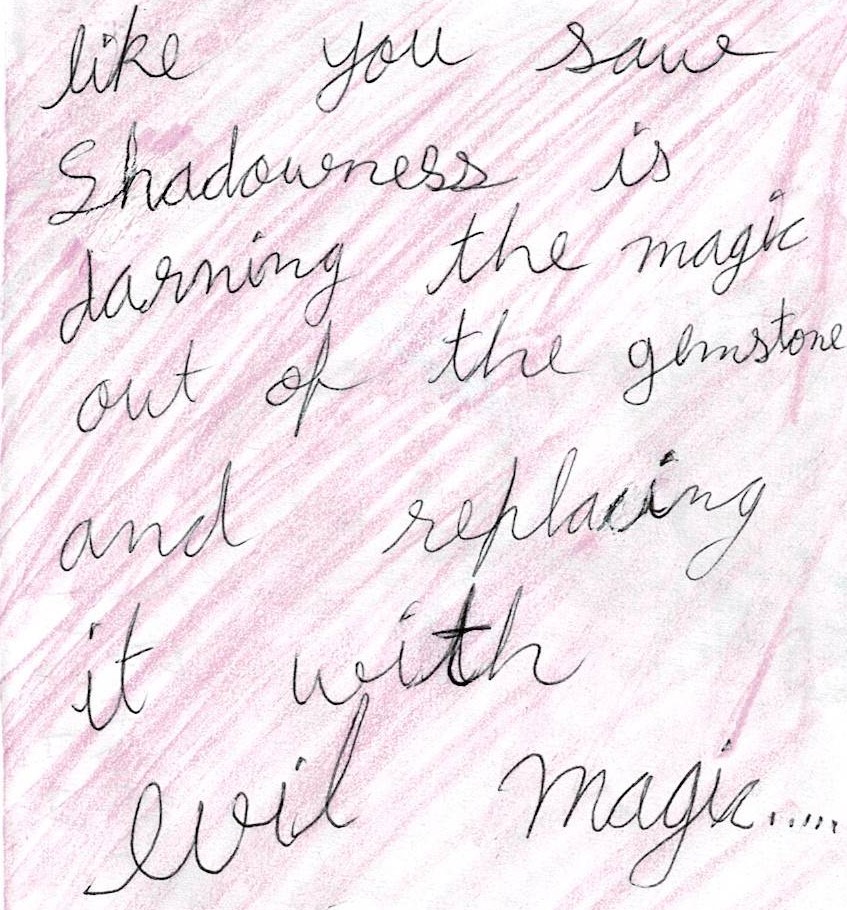 like you saw
Shadowness is
darning the magic
out of the gemstone
and replacing
it with
evil magic.....